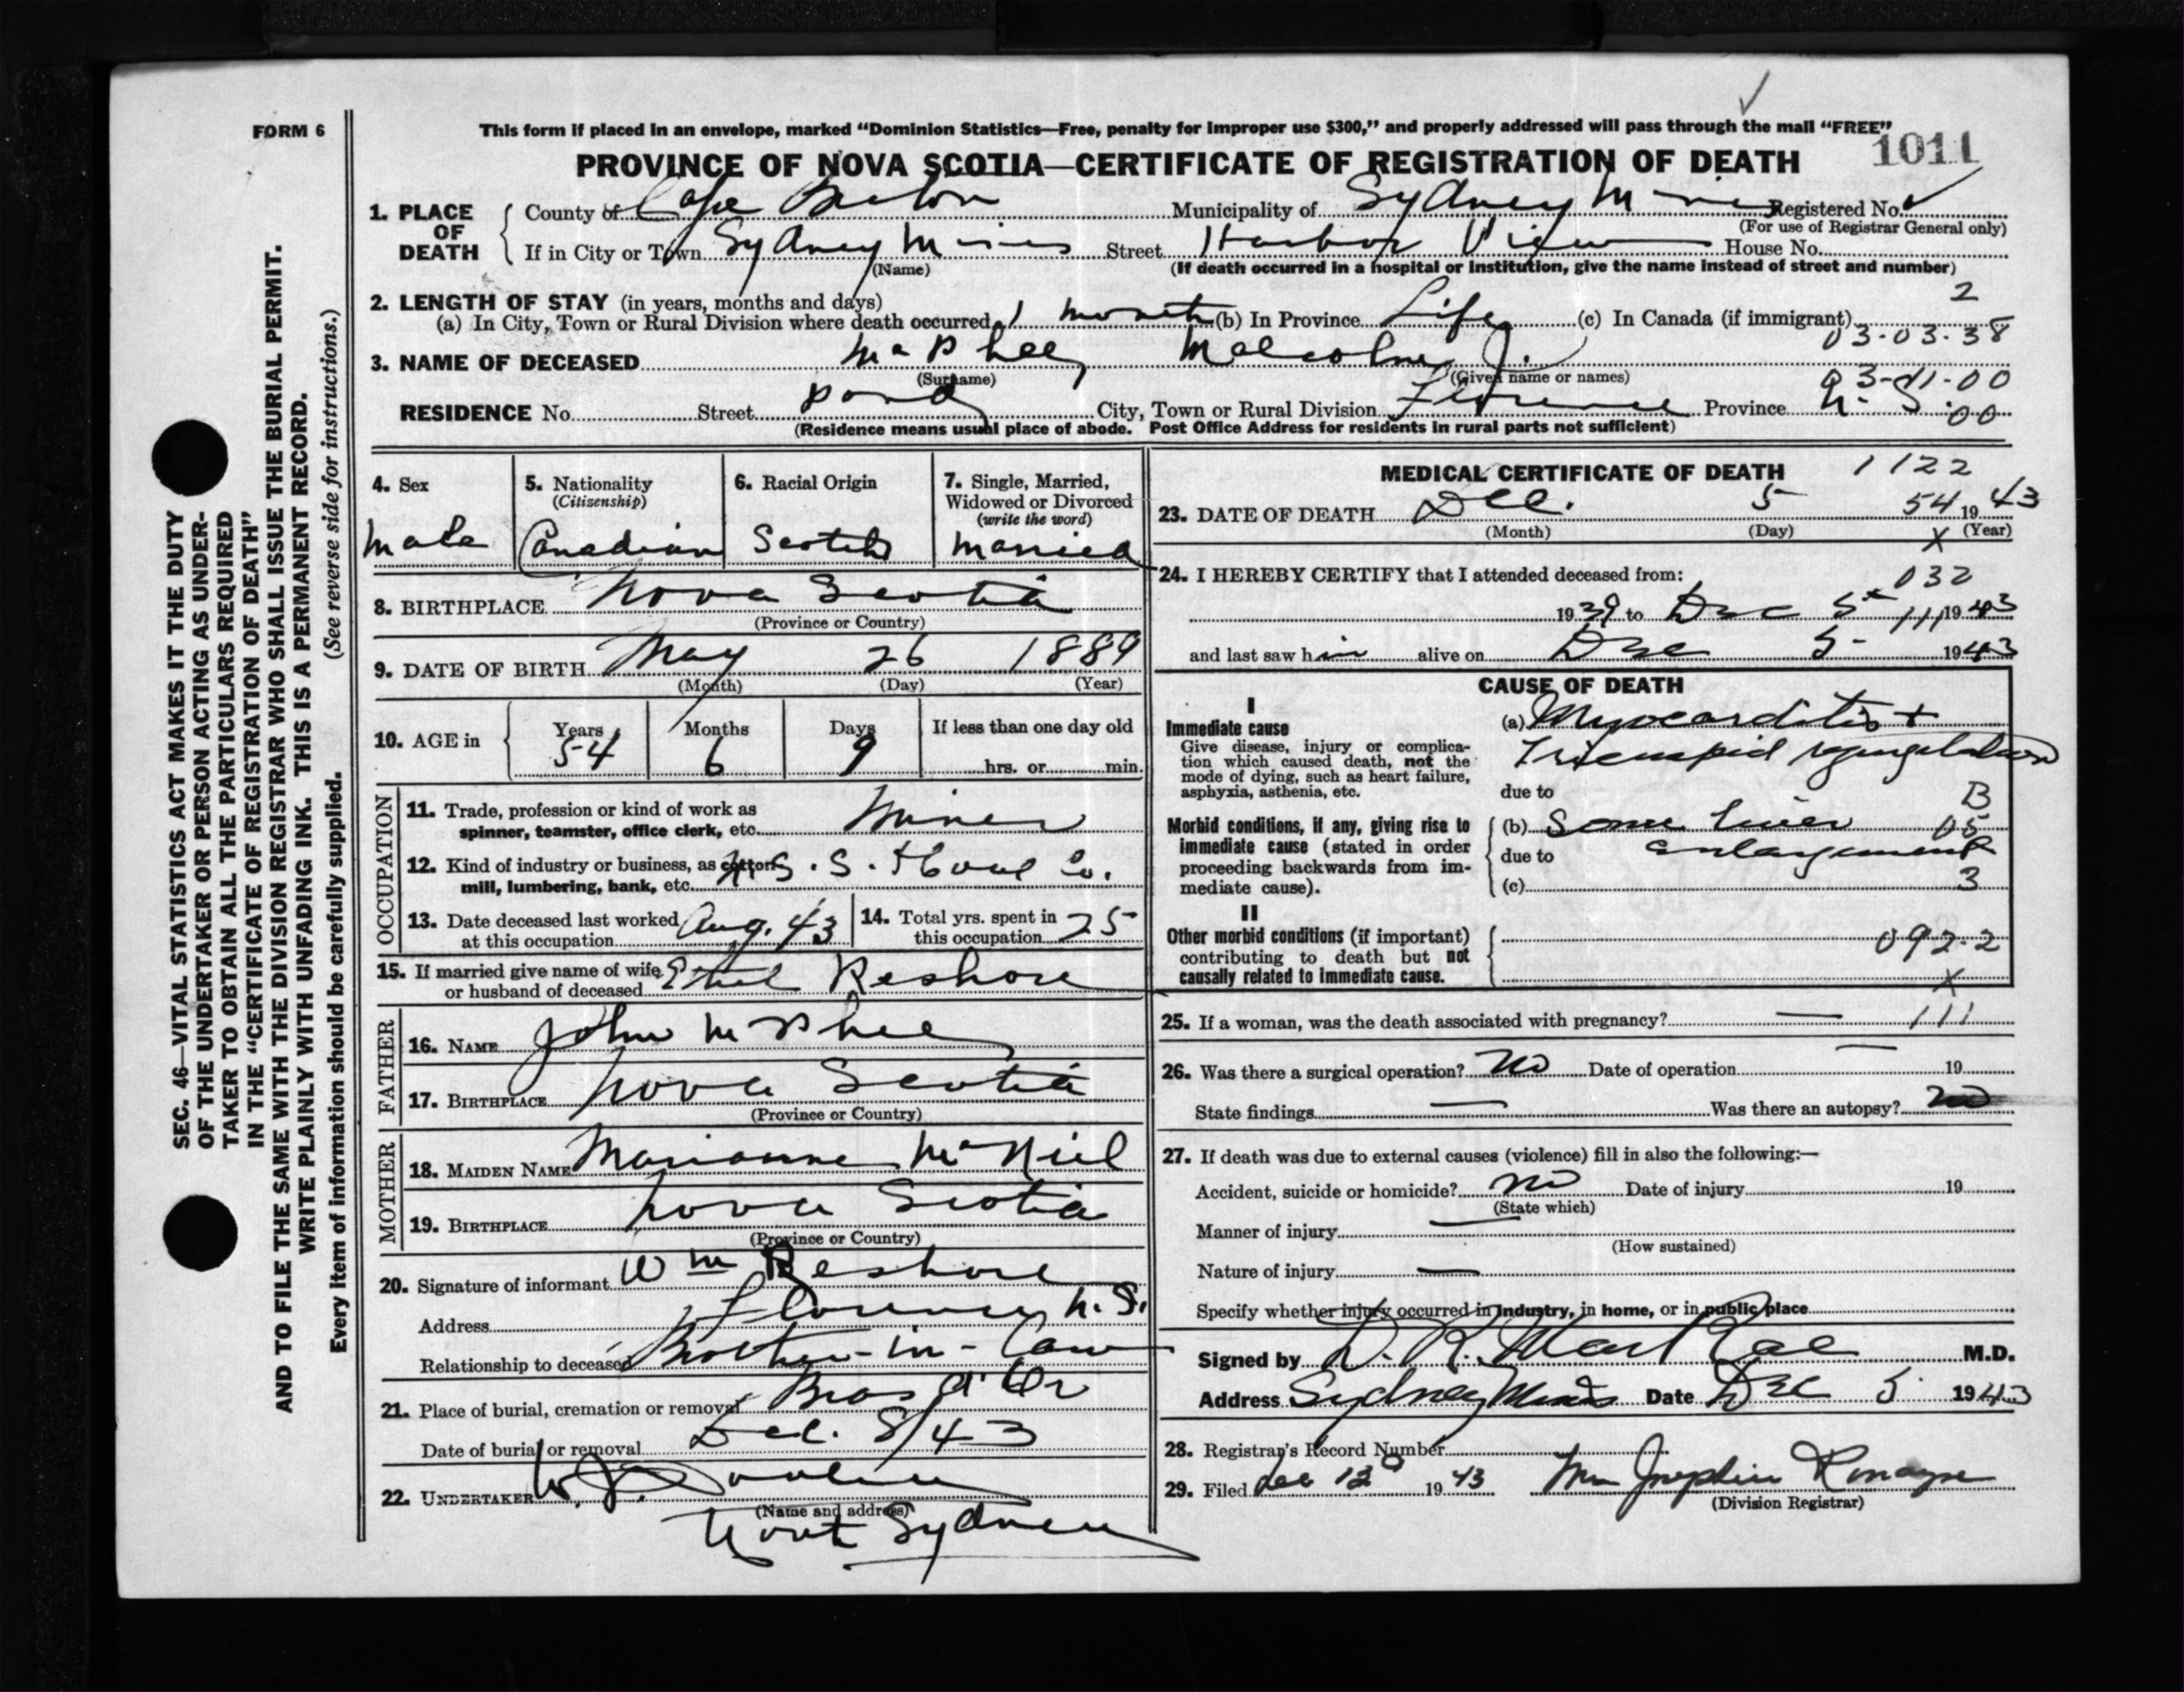 FORM 6
This form if placed in an envelope, marked “Dominion Statistics—Free, penalty for improper use $300,” and properly addressed will pass through the mail “FREE”
1011
PROVINCE OF NOVA SCOTIA—CERTIFICATE OF REGISTRATION OF DEATH
1. PLACE OF DEATH
County of Cape Breton Municipality of Sydney Mines Registered No.
(For use of Registrar General only)
If in City or Town Sydney Mines Street Harbor View House No.
(Name)
(If death occurred in a hospital or institution, give the name instead of street and number)
2. LENGTH OF STAY (in years, months and days) 2
(a) In City, Town or Rural Division where death occurred 1 month (b) In Province Life (c) In Canada (if immigrant)
03-03-38
3. NAME OF DECEASED McPhee Malcolm J.
(Surname) (Given name or names)
RESIDENCE No. Street Pond City, Town or Rural Division Florence Province N. S. 00
(Residence means usual place of abode. Post Office Address for residents in rural parts not sufficient)
4. Sex
Male
5. Nationality
(Citizenship)
Canadian
6. Racial Origin
Scotch
7. Single, Married,
Widowed or Divorced
(write the word)
Married
8. BIRTHPLACE Nova Scotia
(Province or Country)
9. DATE OF BIRTH May 26 1889
(Month) (Day) (Year)
10. AGE in
Years 54 Months 6 Days 9
If less than one day old
hrs. or min.
OCCUPATION
11. Trade, profession or kind of work as
spinner, teamster, office clerk, etc. Miner
12. Kind of industry or business, as cotton
mill, lumbering, bank, etc. N. S. S. & Coal Co.
13. Date deceased last worked
at this occupation Aug. 43
14. Total yrs. spent in
this occupation 25
15. If married give name of wife
or husband of deceased Ethel Reshore
FATHER
16. NAME John McPhee
17. BIRTHPLACE Nova Scotia
(Province or Country)
MOTHER
18. MAIDEN NAME Marianne McNeil
19. BIRTHPLACE Nova Scotia
(Province or Country)
20. Signature of informant Wm Reshore
Address Florence N. S.
Relationship to deceased Brother-in-law
21. Place of burial, cremation or removal Bras d'Or
Date of burial or removal Dec. 8/43
22. UNDERTAKER W. J.
(Name and address)
North Sydney
MEDICAL CERTIFICATE OF DEATH 1122
23. DATE OF DEATH Dec. 5 54 1943
(Month) (Day) (Year)
X
24. I HEREBY CERTIFY that I attended deceased from:
032
1939 to Dec 5th 111 1943
and last saw him alive on Dec 5 1943
CAUSE OF DEATH
I
Immediate cause
Give disease, injury or complica-
tion which caused death, not the
mode of dying, such as heart failure,
asphyxia, asthenia, etc.
(a) Myocarditis +
Tricuspid regurgitation
due to B
Morbid conditions, if any, giving rise to
immediate cause (stated in order
proceeding backwards from im-
mediate cause).
(b) Some liver 05
due to enlargement
(c) 3
II
Other morbid conditions (if important)
contributing to death but not
causally related to immediate cause.
092-2
X
25. If a woman, was the death associated with pregnancy? — 111
26. Was there a surgical operation? No Date of operation — 19
State findings — Was there an autopsy? No
27. If death was due to external causes (violence) fill in also the following:—
Accident, suicide or homicide? No Date of injury 19
(State which)
Manner of injury —
(How sustained)
Nature of injury —
Specify whether injury occurred in industry, in home, or in public place
Signed by D. R. MacRae M.D.
Address Sydney Mines Date Dec 5 1943
28. Registrar's Record Number
29. Filed Dec 12 1943 Mrs Josephine Ronayne
(Division Registrar)
SEC. 46—VITAL STATISTICS ACT MAKES IT THE DUTY
OF THE UNDERTAKER OR PERSON ACTING AS UNDER-
TAKER TO OBTAIN ALL THE PARTICULARS REQUIRED
IN THE “CERTIFICATE OF REGISTRATION OF DEATH”
AND TO FILE THE SAME WITH THE DIVISION REGISTRAR WHO SHALL ISSUE THE BURIAL PERMIT.
WRITE PLAINLY WITH UNFADING INK. THIS IS A PERMANENT RECORD.
Every item of information should be carefully supplied. (See reverse side for instructions.)